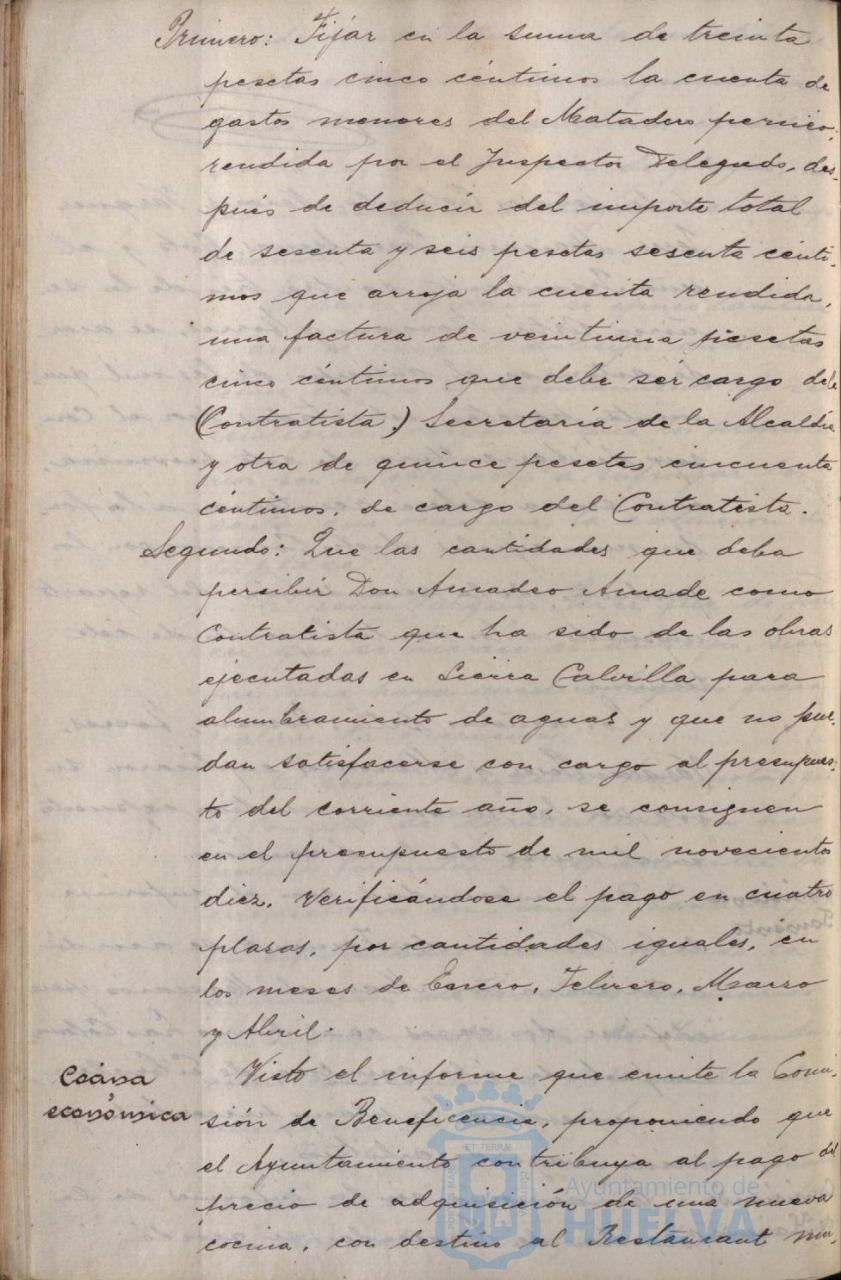 Primero: Fijar en la suma de treinta
pesetas cinco céntimos la cuenta de
gastos menores del Matadero permico,
rendida por el Inspector Delegado, des-
pués de deducir del importe total
de sesenta y seis pesetas sesenta cénti-
mos que arroja la cuenta rendida,
una factura de veintiuna pesetas
cinco céntimos que debe ser cargo de la
(Contratista) Secretaría de la Alcaldía
y otra de quince pesetas cincuenta
céntimos, de cargo del Contratista.
Segundo: Que las cantidades que deba
persibir Don Amadeo Amade como
Contratista que ha sido de las obras
ejecutadas en Sierra Calvilla para
alumbramiento de aguas y que no pue-
dan satisfacerse con cargo al presupues-
to del corriente año, se consignen
en el presupuesto de mil novecientos
diez, verificándose el pago en cuatro
plasos, por cantidades iguales, en
los meses de Enero, Febrero, Marzo
y Abril.
Cocina
económica
Visto el informe que emite la Comi-
sión de Beneficencia, proponiendo que
el Ayuntamiento contribuya al pago del
precio de adquisición de una nueva
cocina, con destino al Restaurant mu-
Ayuntamiento de
HUELVA